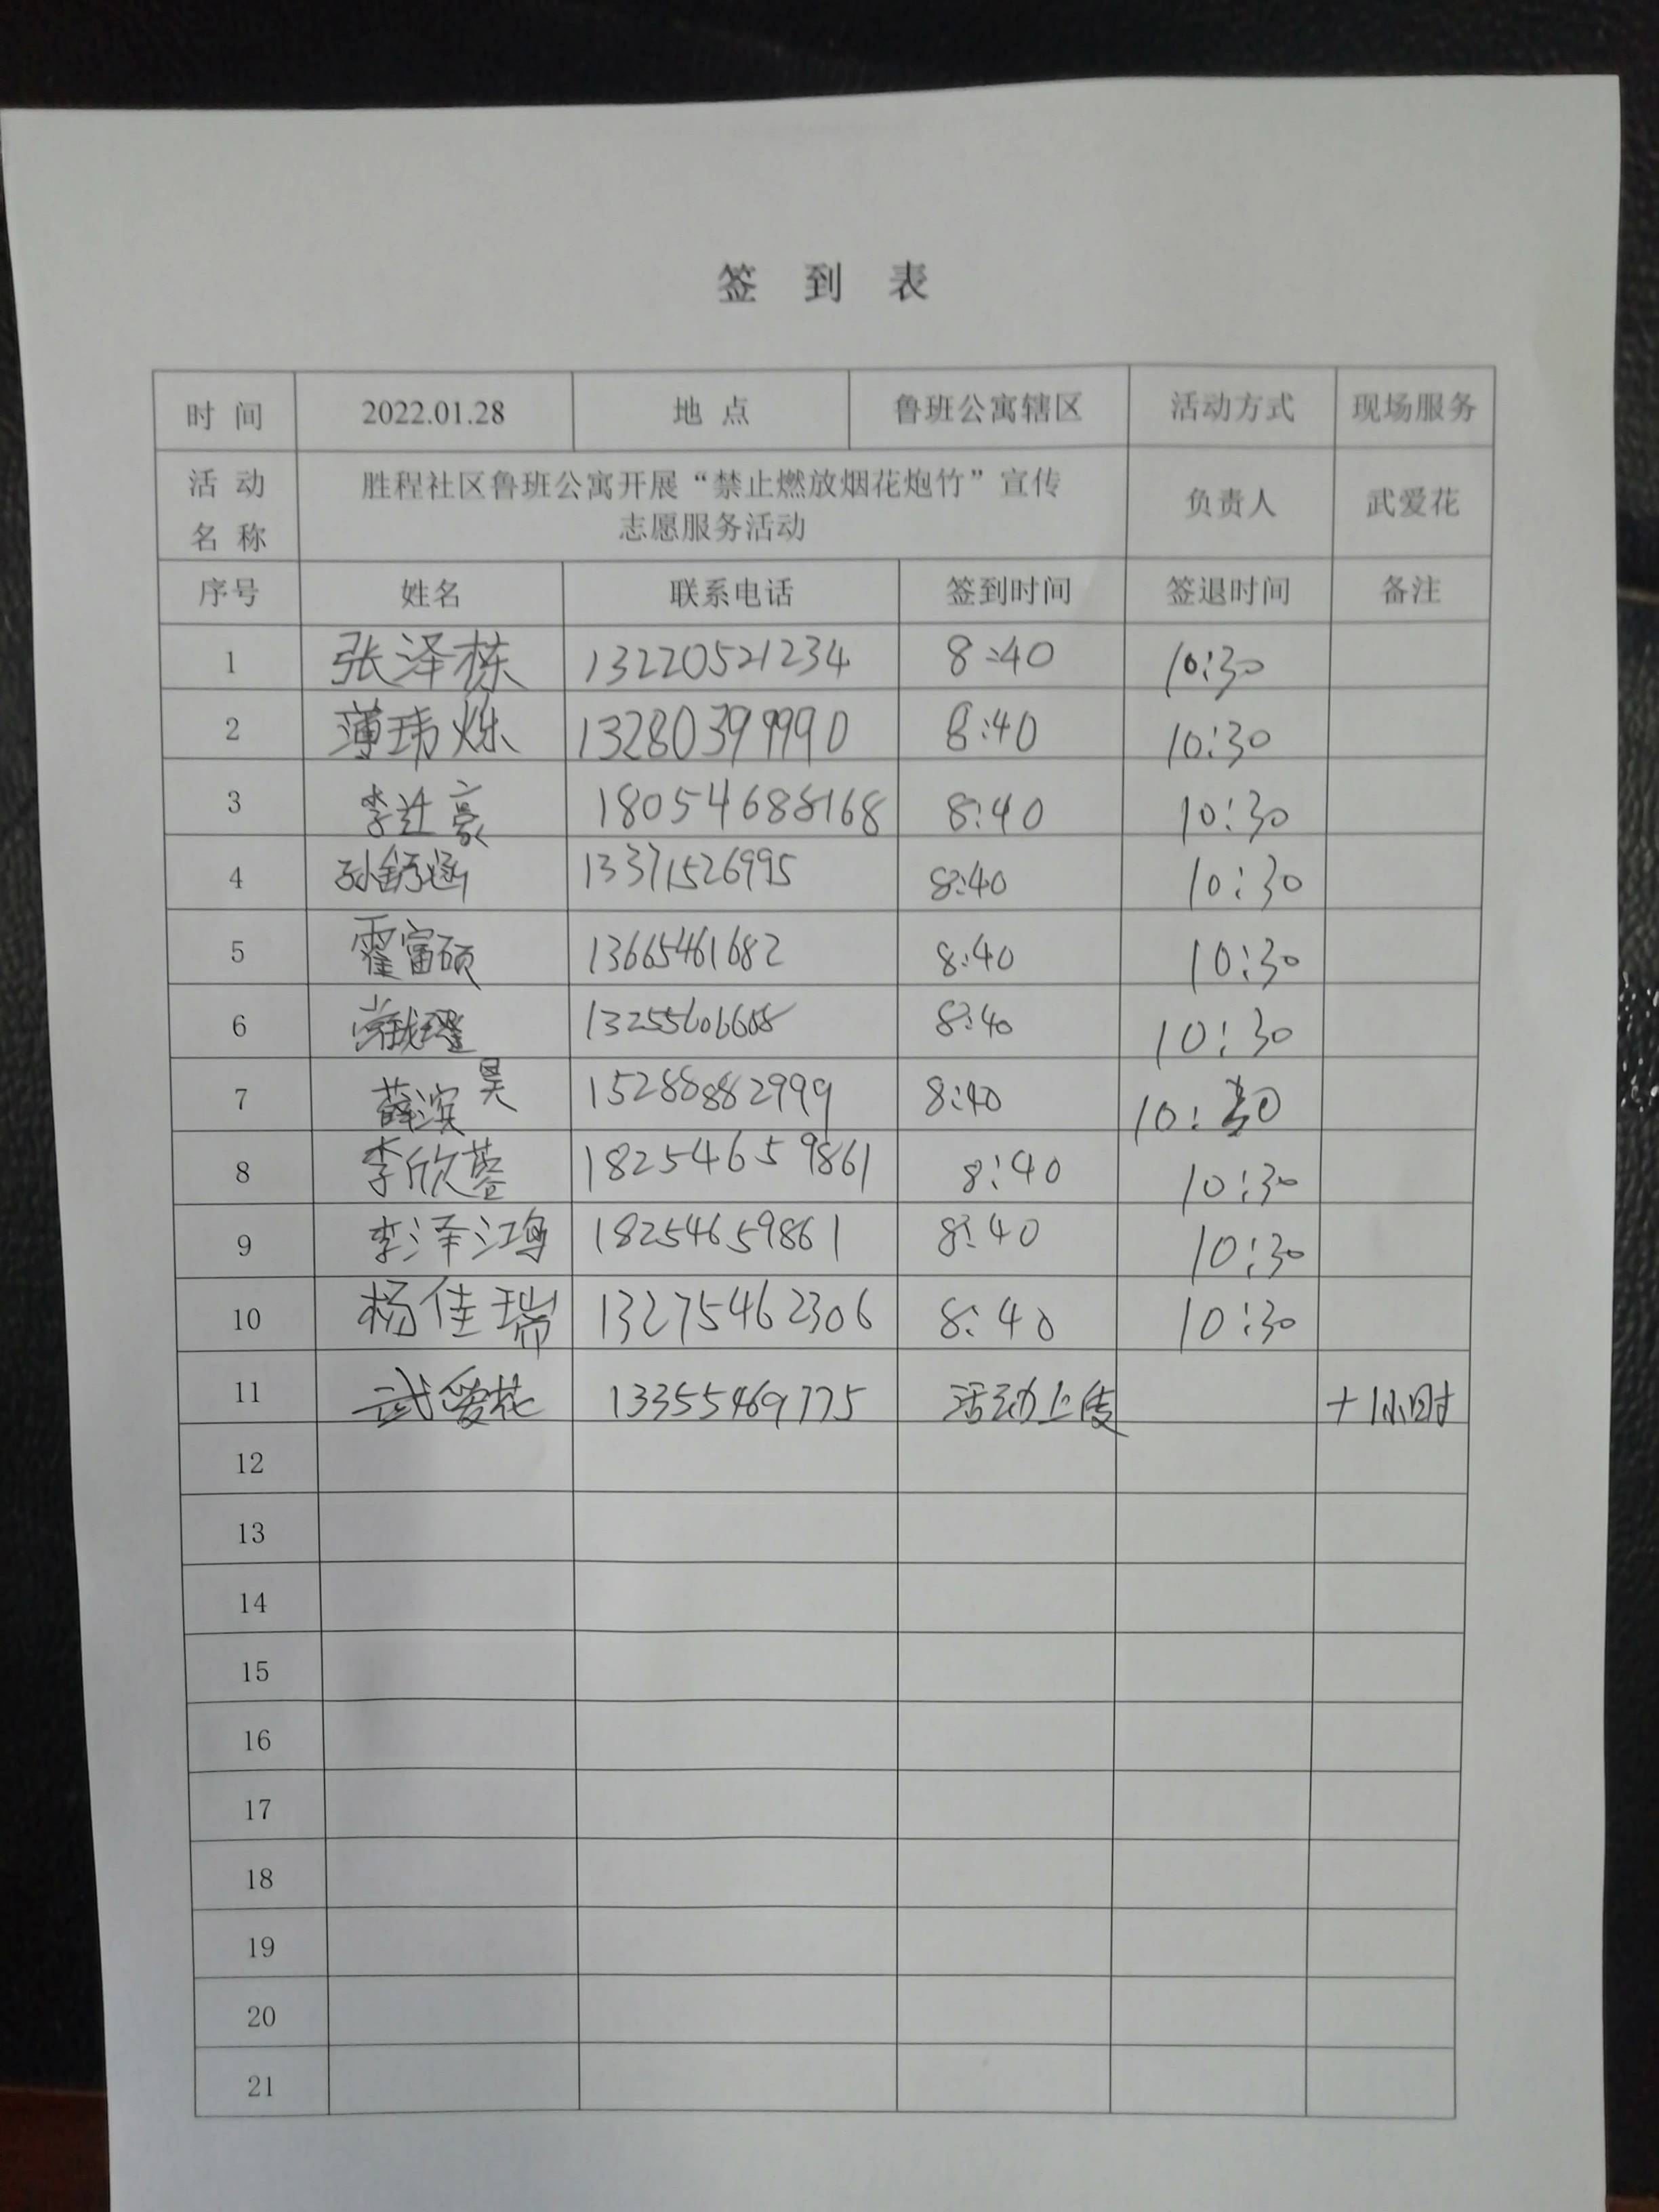 签 到 表
时 间 2022.01.28 地 点 鲁班公寓辖区 活动方式 现场服务
活 动 名 称 胜程社区鲁班公寓开展“禁止燃放烟花炮竹”宣传 负责人 武爱花
志愿服务活动
序号 姓名 联系电话 签到时间 签退时间 备注
1 张泽栋 13220521234 8:40 10:30
2 薄玮烁 13280399990 8:40 10:30
3 李 豪 18054688168 8:40 10:30
4 孙 涵 13371526995 8:40 10:30
5 霍富硕 13665461682 8:40 10:30
6 8:40 10:30
7 薛滨昊 15288882999 8:40 10:30
8 李欣蓉 18254659861 8:40 10:30
9 李泽鸿 18254659861 8:40 10:30
10 杨佳瑞 13275462306 8:40 10:30
11 武爱花 13355469775 活动上传 +1小时
12
13
14
15
16
17
18
19
20
21